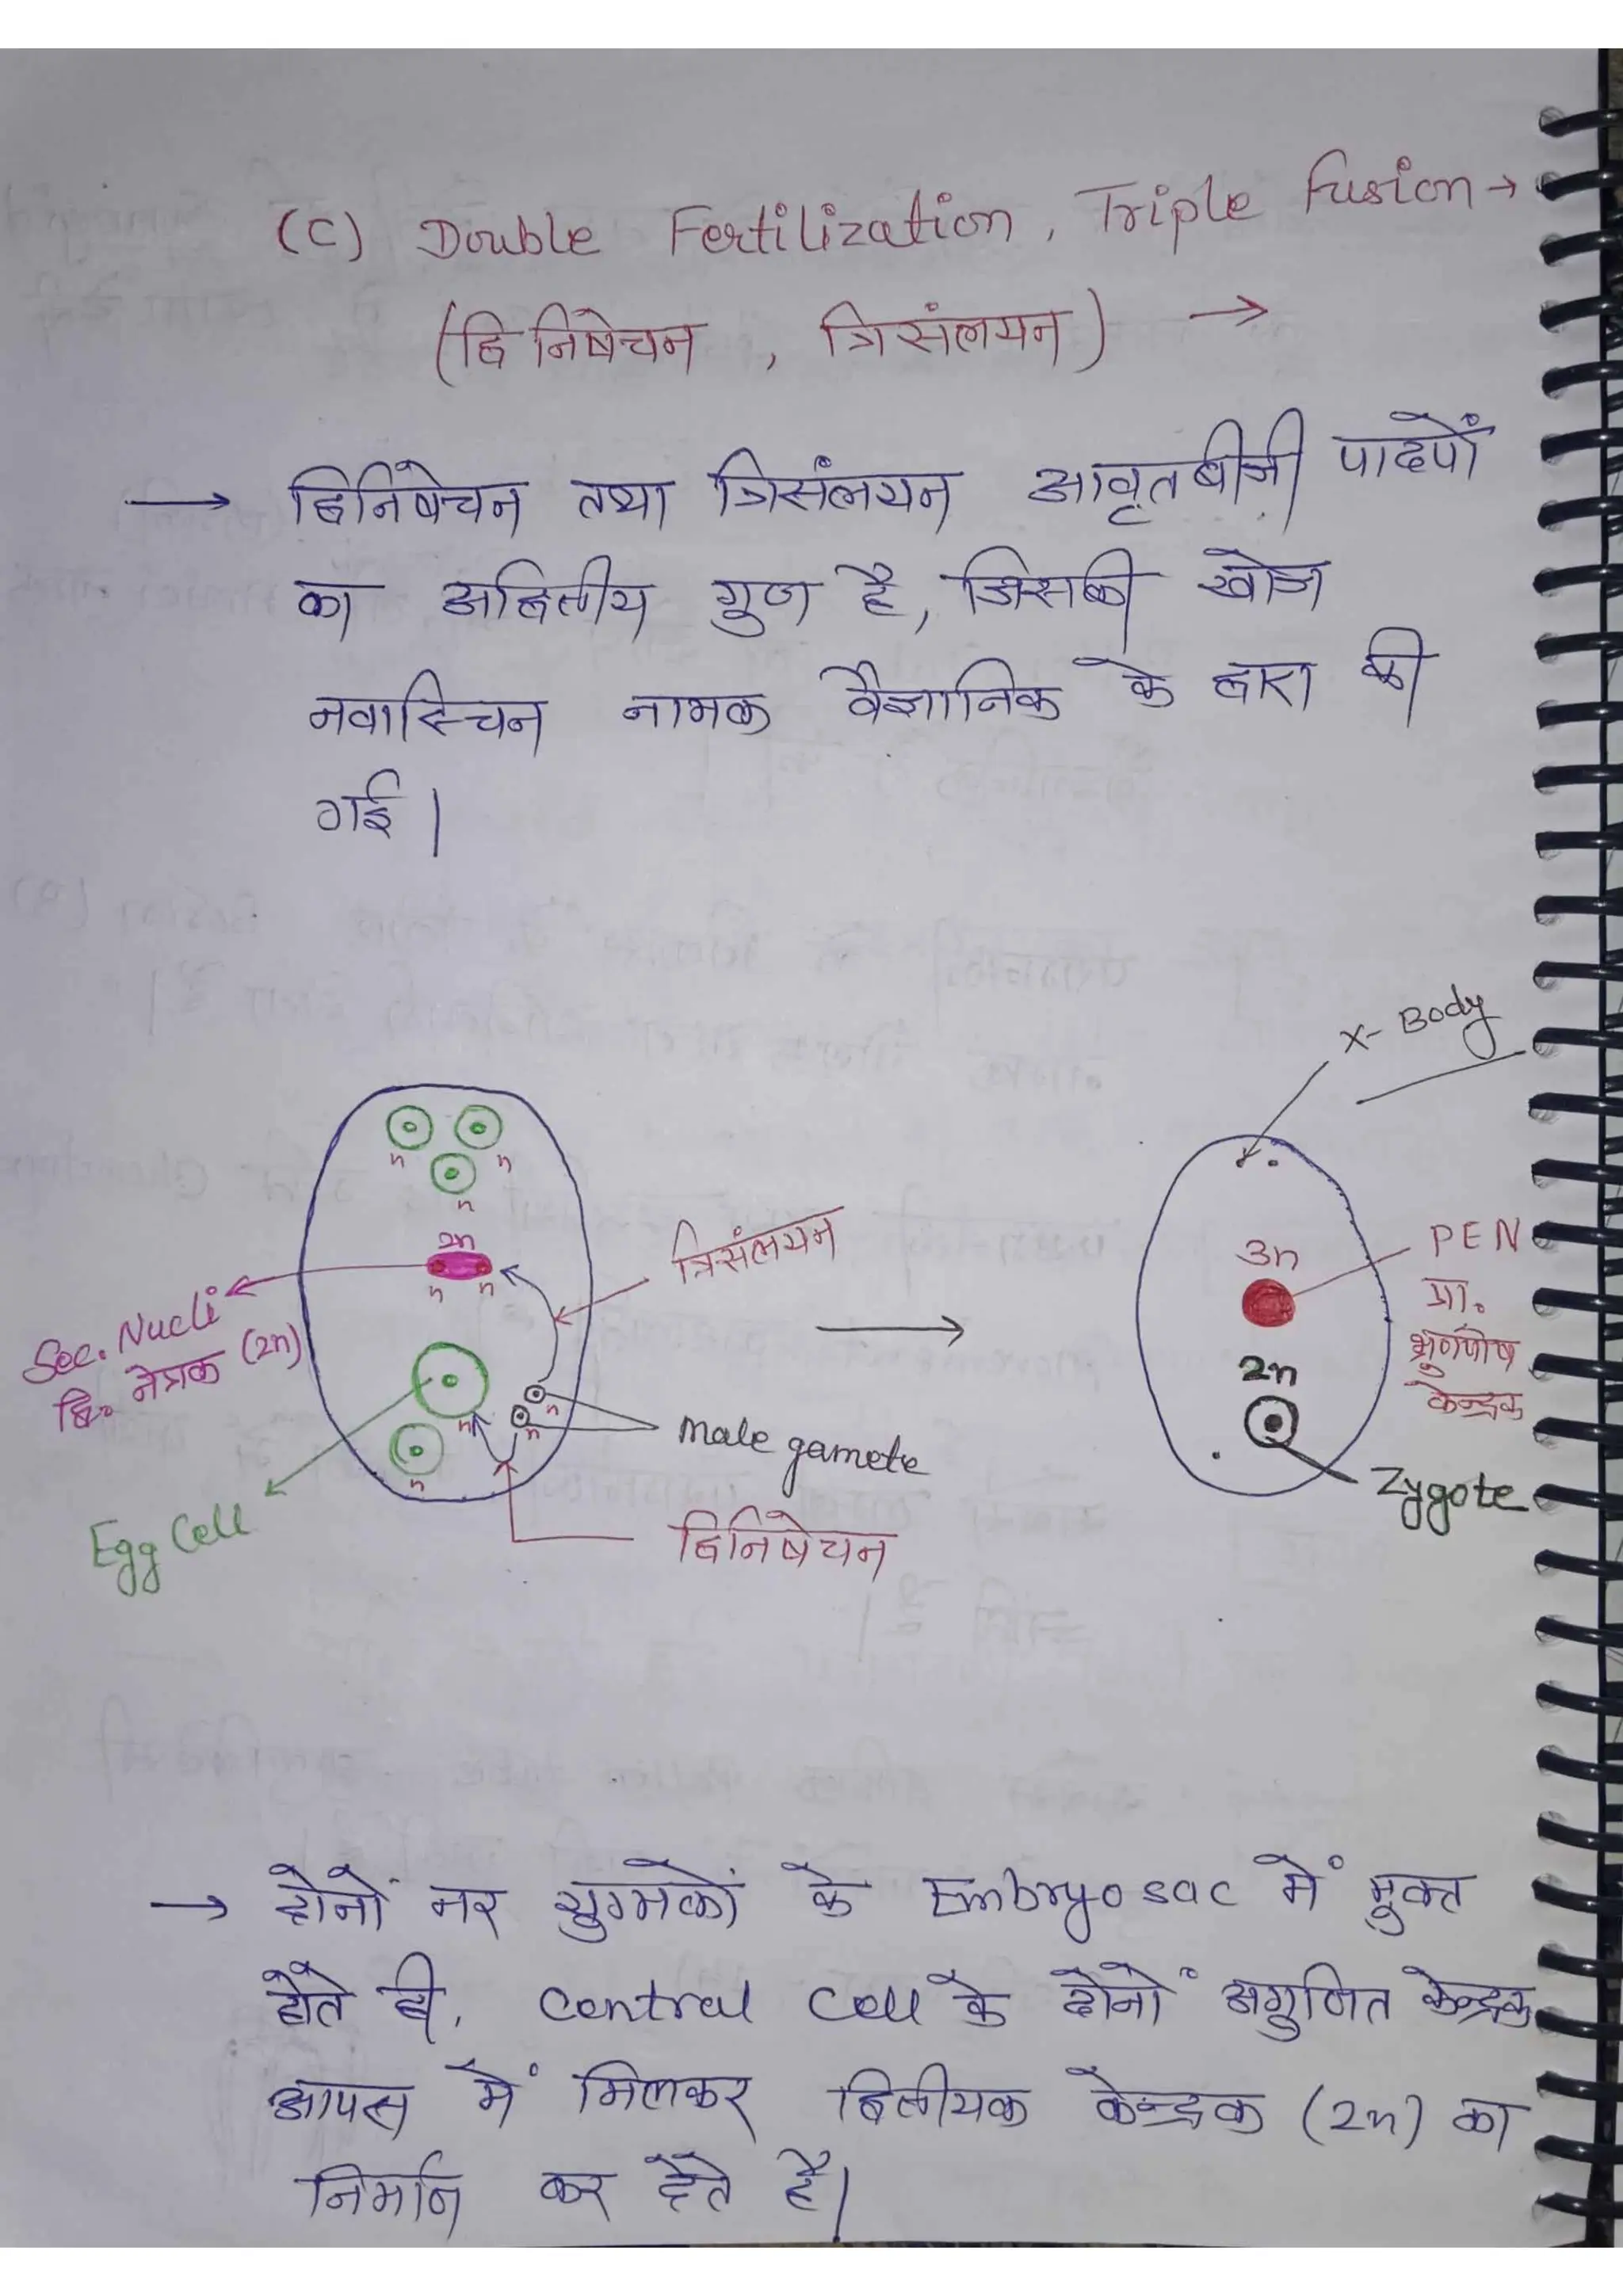 (C) Double Fertilization, Triple Fusion →
(द्विनिषेचन, त्रिसंलयन) →
→ द्विनिषेचन तथा त्रिसंलयन आवृतबीजी पादपों
का अद्वितीय गुण है, जिसकी खोज
नवास्चिन नामक वैज्ञानिक के द्वारा की
गई।
X- Body
n n
n
2n
n n
त्रिसंलयन
Sec. Nucli
द्वि. नेत्रक (2n)
n
n n
n
male gamete
Egg Cell
द्विनिषेचन
3n
PEN
प्रा.
भ्रूणपोष
केन्द्रक
2n
Zygote
→ दोनों नर युग्मकों के Embryosac में मुक्त
होते ही, central cell के दोनों अगुणित केन्द्रक
आपस में मिलकर द्वितीयक केन्द्रक (2n) का
निर्माण कर देते है।